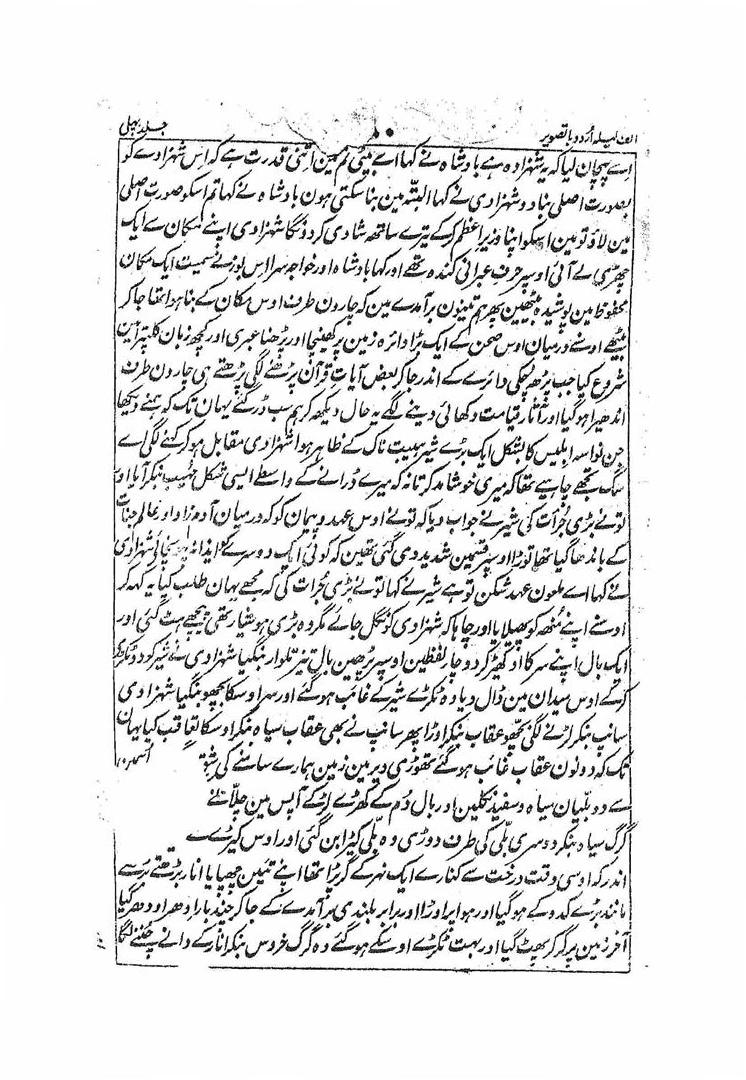 الف لیلہ اردو باتصویر
۸۰
جلد پہلی
اسے پہچان لیا کہ یہ شہزادہ ہے بادشاہ نے کہا اے بیٹی تم مین اتنی قدرت ہے کہ اس شہزادے کو
بصورت اصلی بنا دو شہزادی نے کہا البتہ مین بنا سکتی ہون بادشاہ نے کہا تم اسکو صورت اصلی
مین لاؤ تو مین اسکو اپنا وزیر اعظم کر کے تیرے ساتھ شادی کر دونگا شہزادی اپنے مکان سے ایک
چھڑی لے آئی اوسپر حرف عبرانی کندہ تھے اور کہا بادشاہ اور خواجہ سرا اس بوزنے سمیت ایک مکان
محفوظ مین پوشیدہ بیٹھین پھر ہم تینون برآمدے مین کہ چارون طرف اوس مکان کے بنا ہوا تھا جا کر
بیٹھے اوسنے درمیان اوس صحن کے ایک بڑا دائرہ زمین پر کھینچا اور پڑھنا عبری اور کچھ زبان
شروع کیا جب پڑھ چکی دائرے کے اندر جا کر بعض آیات قرآن پڑھنے لگی پڑھتے ہی چارون طرف
اندھیرا ہو گیا اور آثار قیامت دکھائی دینے لگے یہ حال دیکھ کر ہم سب ڈر گئے یہان تک کہ ہمنے دیکھا
جن نواسہ ابلیس کا بشکل ایک بڑے شیر ہیبت ناک کے ظاہر ہوا شہزادی مقابل ہو کر کہنے لگی اے
سگ تجھے چاہیے تھا کہ میری خوشامد کرتا نہ کہ میرے ڈرانے کے واسطے ایسی شکل مہیب بنکر آیا اور
تونے بڑی جرأت کی شیر نے جواب دیا کہ تونے اوس عہد و پیمان کو کہ درمیان آدمزاد اور عالم جنات
کے باندھا گیا تھا توڑا اوسپر قسمین شدید دی گئی تھین کہ کوئی ایک دوسرے کو ایذا نہ پہنچائے شہزادی
نے کہا اے ملعون عہد شکن تو ہے شیر نے کہا تونے بڑی جرأت کی کہ مجھے یہان طلب کیا یہ کہہ کر
اوسنے اپنے مُنھ کو پھیلایا اور چاہا کہ شہزادی کو نگل جائے مگر وہ بڑی ہوشیار تھی پیچھے ہٹ گئی اور
ایک بال اپنے سر کا اُکھیڑ کر دو چار لفظین اوسپر پڑھین بال تیز تلوار بنگیا شہزادی نے شیر کو دو ٹکڑے
کر کے اوس میدان مین ڈال دیا وہ ٹکڑے شیر کے غائب ہو گئے اور سر اوسکا بچھو بنگیا شہزادی
سانپ بنکر لڑنے لگی بچھو عقاب بنکر اوڑا پھر سانپ نے بھی عقاب سیاہ بنکر اوسکا تعاقب کیا یہان
تک کہ دونون عقاب غائب ہو گئے تھوڑی دیر مین زمین ہمارے سامنے کی شق
سے دو بلیان سیاہ و سفید نکلین اور بال دُم کے کھڑے کر کے آپس مین چلانے
گرگ سیاہ بنکر دوسری بلّی کی طرف دوڑی وہ بلّی کیڑا بن گئی اور اوس کیڑے
اندر کہ اوسی وقت درخت سے کنارے ایک نہر کے گر پڑا تھا اپنے تئین چھپایا انار بڑھتے بڑھتے
مانند بڑے کدو کے ہو گیا اور ہوا پر اوڑا اور برابر بلندی برآمدے کے جا کر چند بار ادھر اودھر گیا
آخر زمین پر گر کر پھٹ گیا اور بہت ٹکڑے اوسکے ہو گئے وہ گرگ خروس بنکر انار کے دانے چگنے لگا